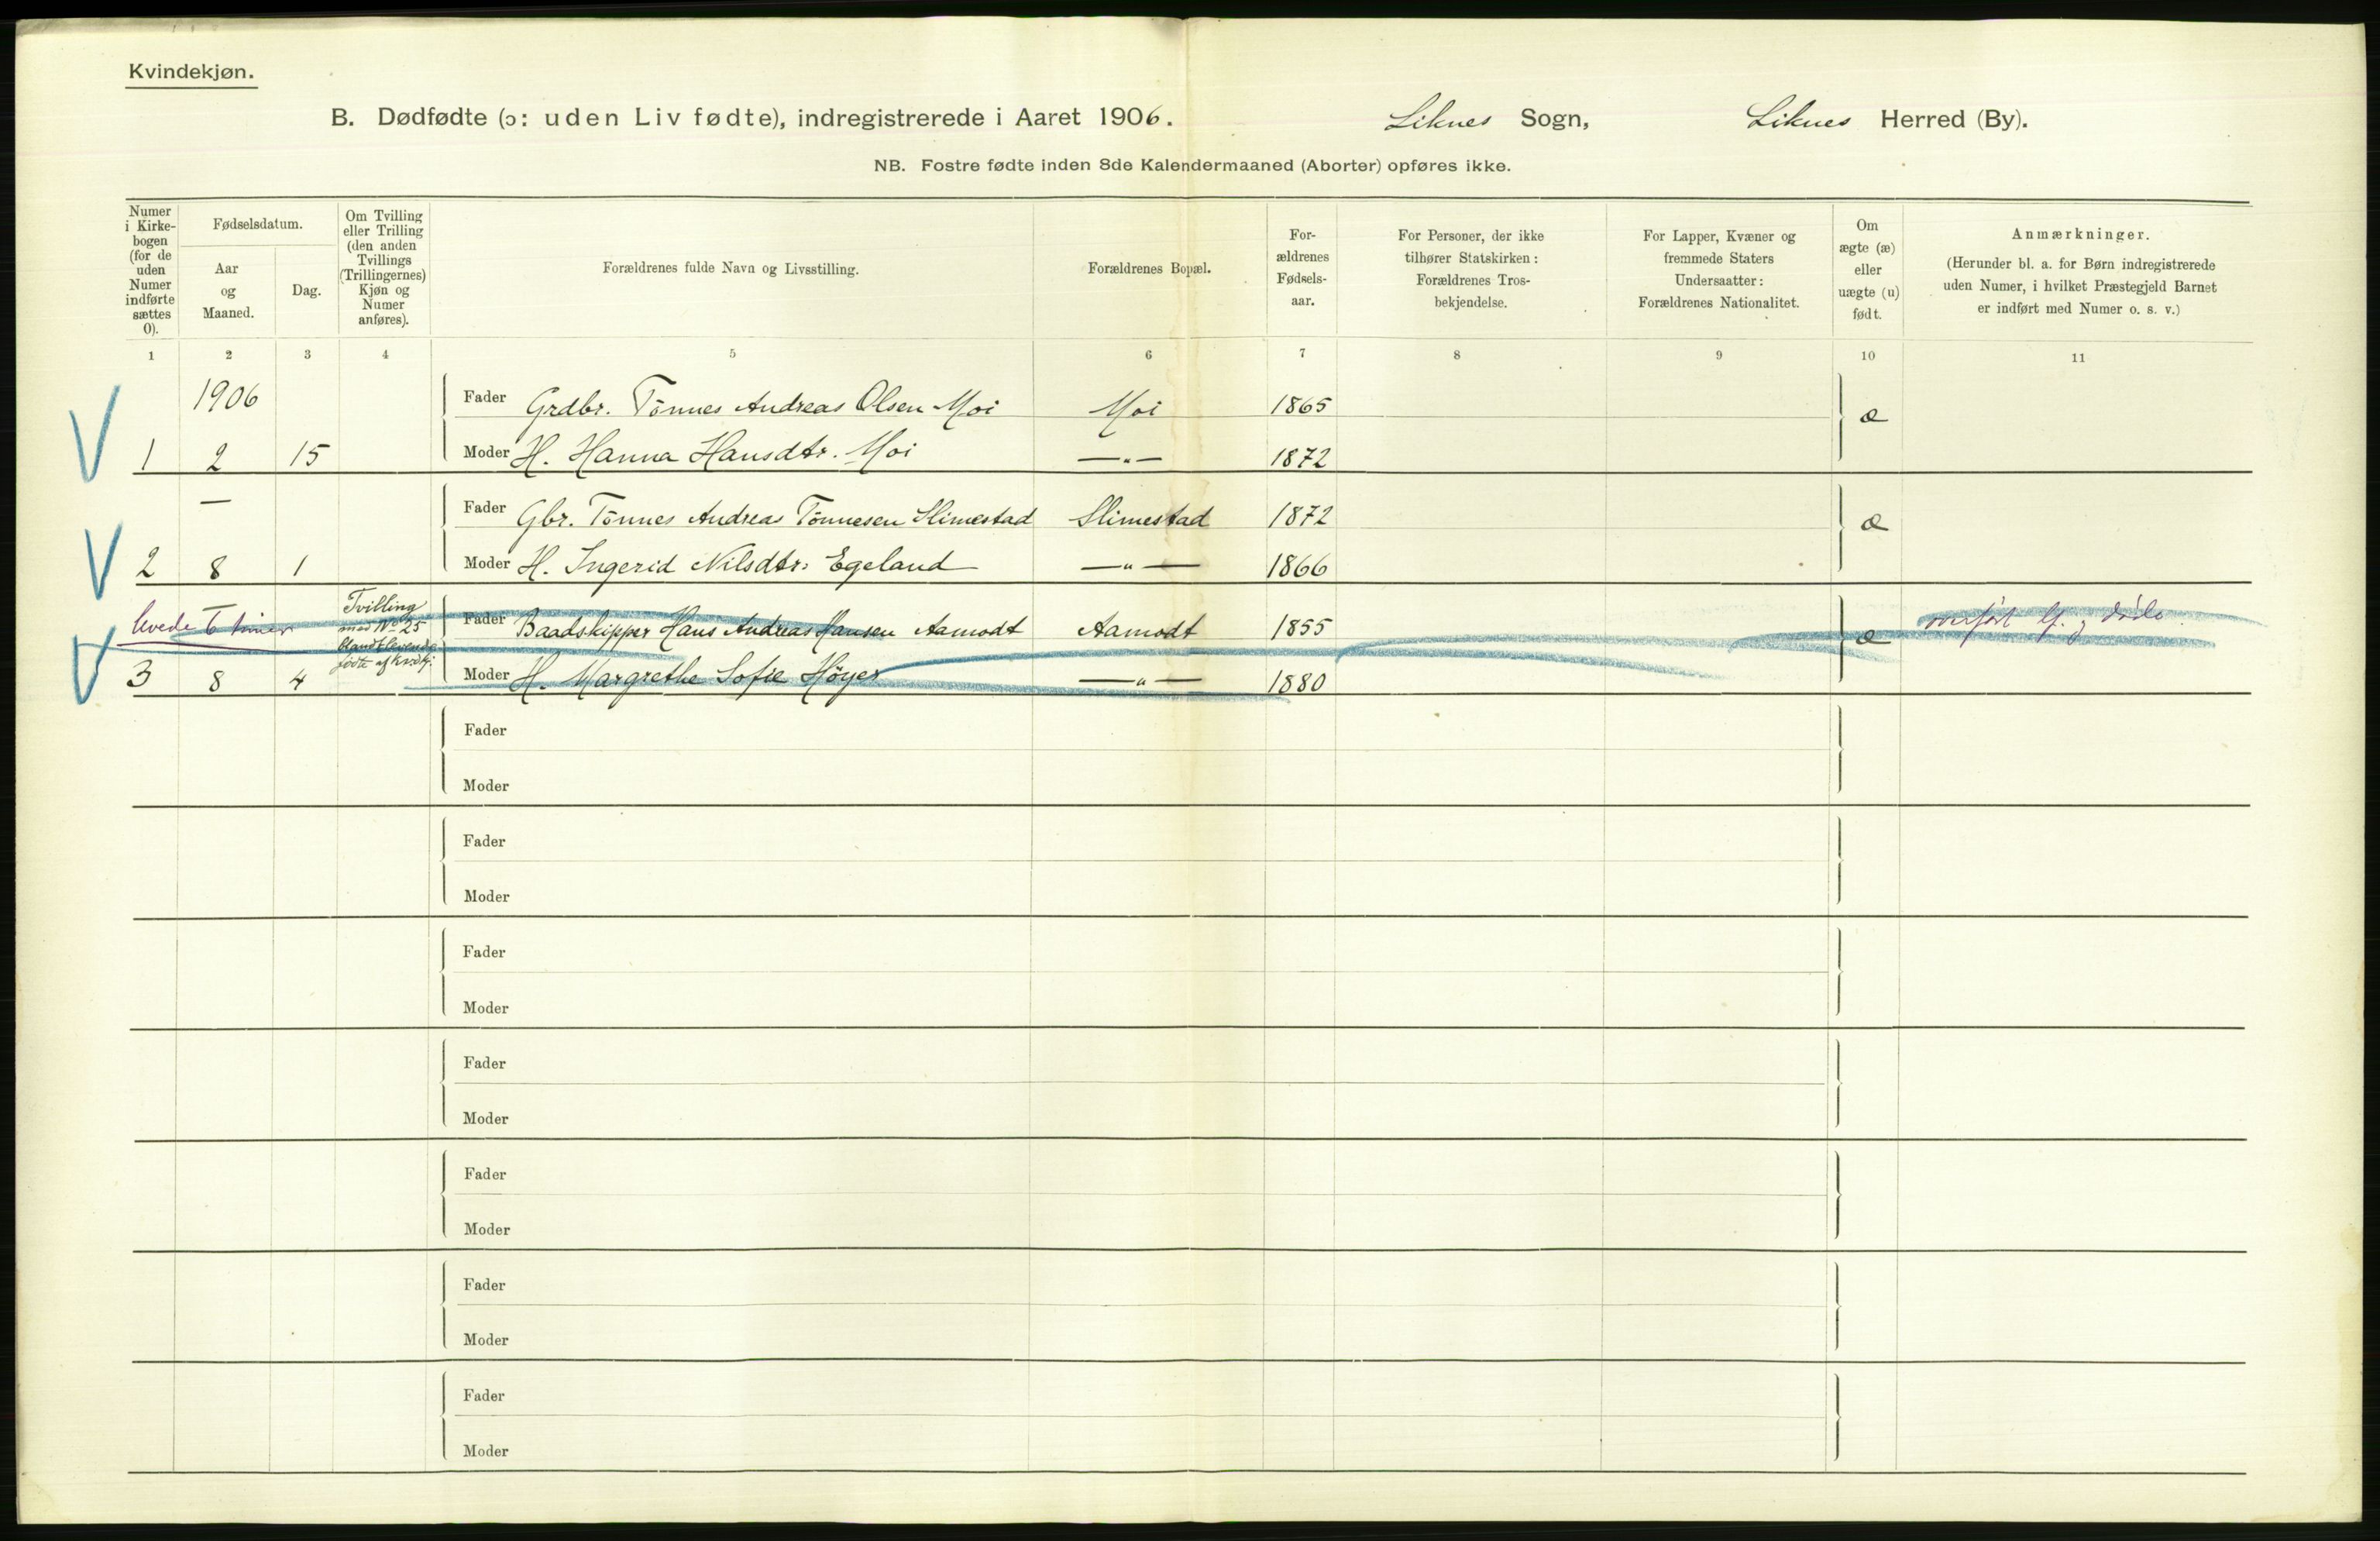 Kvindekjøn.
B. Dødfødte (ɔ: uden Liv fødte), indregistrerede i Aaret 1906. Liknes Sogn, Liknes Herred (By).
NB. Fostre fødte inden 8de Kalendermaaned (Aborter) opføres ikke.
Numer i Kirke-
bogen
(for de
uden
Numer
indførte
sættes
0).
Fødselsdatum.
Aar
og
Maaned.
Dag.
Om Tvilling
eller Trilling
(den anden
Tvillings
(Trillingernes)
Kjøn og
Numer
anføres).
Forældrenes fulde Navn og Livsstilling.
Forældrenes Bopæl.
For-
ældrenes
Fødsels-
aar.
For Personer, der ikke
tilhører Statskirken:
Forældrenes Tros-
bekjendelse.
For Lapper, Kvæner og
fremmede Staters
Undersaatter:
Forældrenes Nationalitet.
Om
ægte (æ)
eller
uægte (u)
født.
Anmærkninger.
(Herunder bl. a. for Børn indregistrerede
uden Numer, i hvilket Præstegjeld Barnet
er indført med Numer o. s. v.)
1 2 3 4 5 6 7 8 9 10 11
1906 Fader Grdbr. Tönnes Andreas Olsen Moi Moi 1865 æ
1 2 15 Moder H. Hanna Hansdtr. Moi —„— 1872
— Fader Gbr. Tönnes Andreas Tönnesen Slimestad Slimestad 1872 æ
2 8 1 Moder H. Ingerid Nilsdtr. Egeland —„— 1866
levede 6 timer
Tvilling
med No 25
blandt levende
födte af kvdkj.
Fader Baadskipper Hans Andreas Hansen Aamodt Aamodt 1855 æ overført lf. og døde.
3 8 4 Moder H. Margrethe Sofie Höyer —„— 1880
Fader
Moder
Fader
Moder
Fader
Moder
Fader
Moder
Fader
Moder
Fader
Moder
Fader
Moder